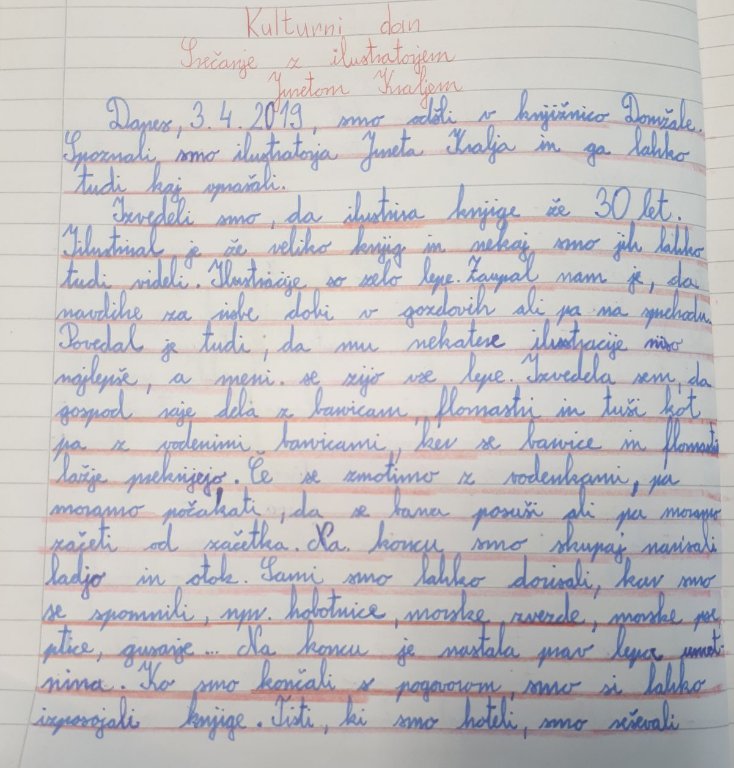 Kulturni dan
Srečanje z ilustratorjem
Jmetom Kraljem
Danes, 3. 4. 2019, smo odšli v knjižnico Domžale.
Spoznali smo ilustratorja Jmeta Kralja in ga lahko
tudi kaj vprašali.
Izvedeli smo, da ilustrira knjige že 30 let.
Ilustriral je že veliko knjig in nekaj smo jih lahko
tudi videli. Ilustracije so zelo lepe. Zaupal nam je, da
navdihe za sebe dobi v gozdovih ali pa na sprehodu.
Povedal je tudi, da mu nekatere ilustracije niso
najlepše, a meni se zijo vse lepe. Izvedela sem, da
gospod raje dela z barvicam, flomastri in tuši kot
pa z vodenimi barvicami, ker se barvice in flomastri
lažje prekrijejo. Če se zmotimo z vodenkami, pa
moramo počakati, da se barva posuši ali pa moramo
začeti od začetka. Na koncu smo skupaj narisali
ladjo in otok. Sami smo lahko dorisali, kar smo
se spomnili, npr. hobotnice, morske zvezde, morske pse
ptice, gusarje... Na koncu je nastala prav lepa umet-
nina. Ko smo končali s pogovorom, smo si lahko
izposojali knjige. Tisti, ki smo hoteli, smo reševali